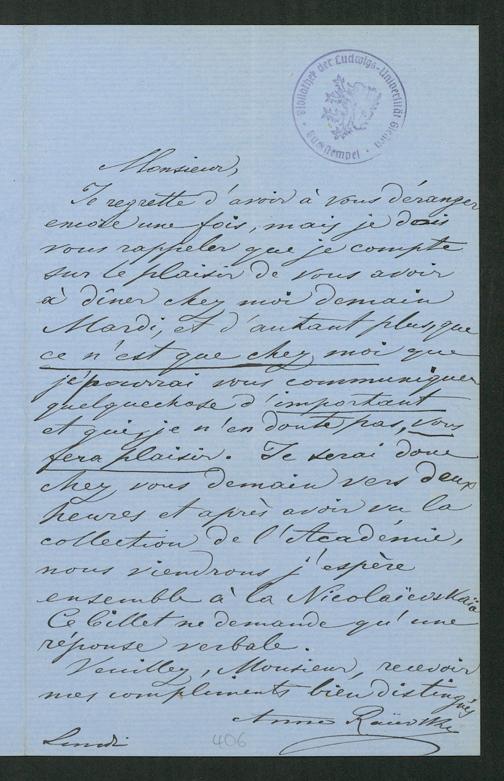 Bibliothek der Ludwigs-Universität Giessen
Monsieur,
Je regrette d'avoir à vous déranger
encore une fois, mais je dois
vous rappeler que je compte
sur le plaisir de vous avoir
à dîner chez moi demain
Mardi, et d'autant plus que
ce n'est que chez moi que
je pourrai vous communiquer
quelquechose d'important
et qui, je n'en doute pas, vous
fera plaisir. Je serai donc
chez vous demain vers deux
heures et après avoir vu la
collection de l'Académie,
nous viendrons j'espère
ensemble à la Nicolaïewskaïa
Ce billet ne demande qu'une
réponse verbale.
Veuillez, Monsieur, recevoir
mes compliments bien distingués
Anna
Lundi
406